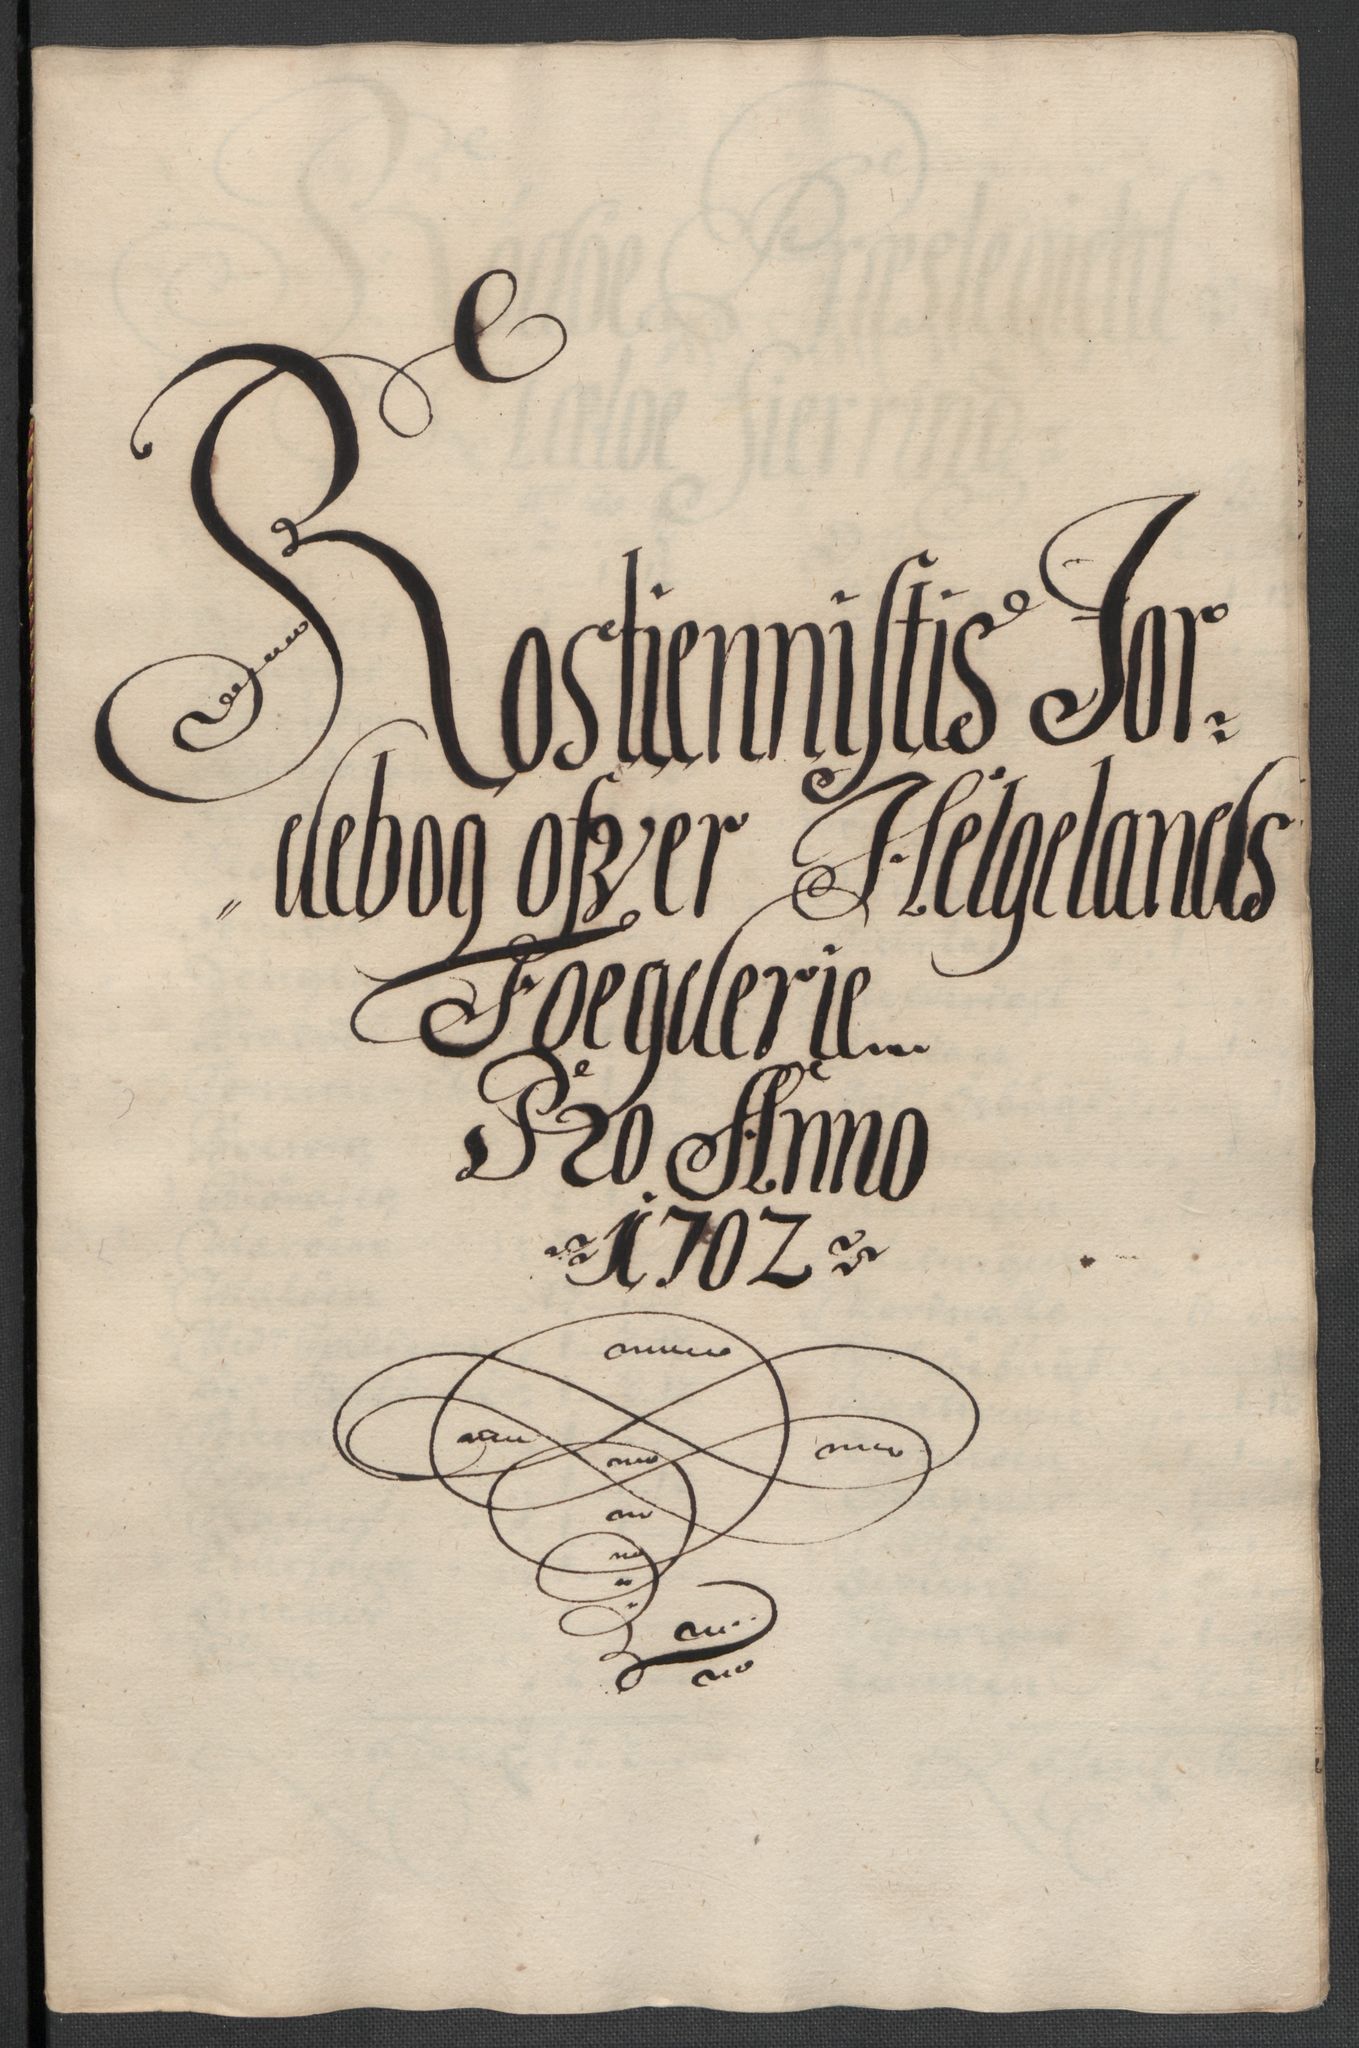 Rostiennistis Jor-
debog ofver Helgelands
Foegderie
Pro Anno
1702